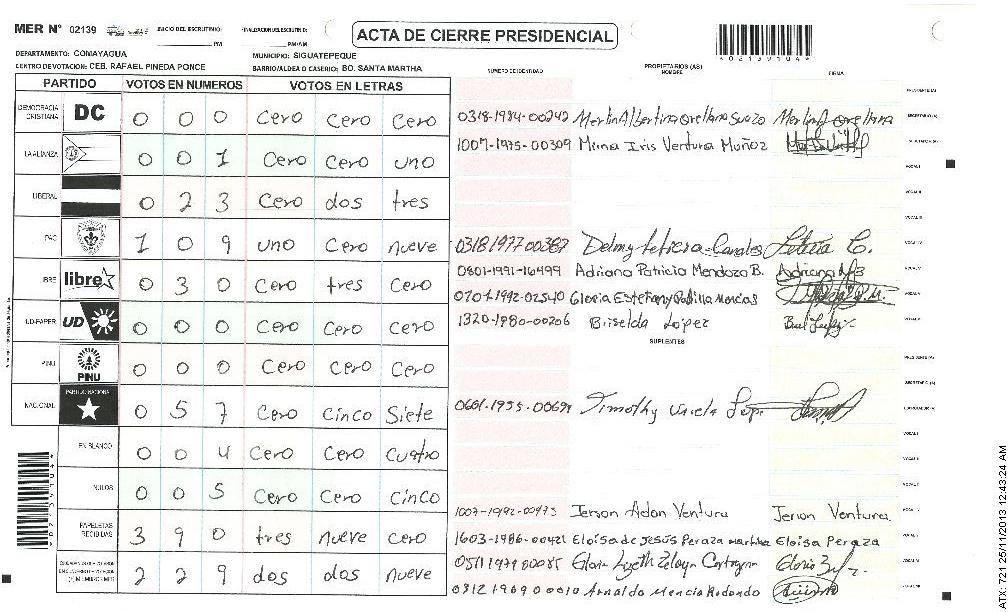 MER N° 02139
INICIO DEL ESCRUTINIO: PM
FINALIZACION DEL ESCRUTINIO: PM/AM
ACTA DE CIERRE PRESIDENCIAL
DEPARTAMENTO: COMAYAGUA
MUNICIPIO: SIGUATEPEQUE
CENTRO DE VOTACION: CEB. RAFAEL PINEDA PONCE
BARRIO/ALDEA O CASERIO: BO. SANTA MARTHA
NUMERO DE IDENTIDAD PROPIETARIOS (AS) NOMBRE FIRMA
PARTIDO VOTOS EN NUMEROS VOTOS EN LETRAS
DEMOCRACIA CRISTIANA DC 0 0 0 Cero Cero Cero
LA ALIANZA 0 0 1 Cero Cero uno
LIBERAL 0 2 3 Cero dos tres
PAC 1 0 9 uno Cero nueve
LIBRE libre 0 3 0 Cero tres Cero
UD-FAPER UD 0 0 0 Cero Cero Cero
PINU PINU 0 0 0 Cero Cero Cero
NACIONAL PARTIDO NACIONAL 0 5 7 Cero Cinco Siete
EN BLANCO 0 0 4 Cero Cero Cuatro
NULOS 0 0 5 Cero Cero Cinco
PAPELETAS RECIBIDAS 3 9 0 tres nueve cero
2 2 9 dos dos nueve
0318-1984-00242 Merlin Albertina Orellana Suazo Merlin Orellana
1007-1975-00309 Mirna Iris Ventura Muñoz
0318 1977 00387 Delmy Leticia Canales Leticia C.
0801-1991-16499 Adriana Patricia Mendoza B.
0704-1992-02540 Gloria Estefany Padilla
1320-1980-00206 Briselda Lopez
SUPLENTES
Timothy
Jerson Adan Ventura Jerson Ventura
1603-1986-00421 Eloisa de Jesús Peraza Eloisa Peraza
Gloria Lizeth Zelaya
Arnaldo Mencia Redondo
ATX-721 25/11/2013 12:43:24 AM